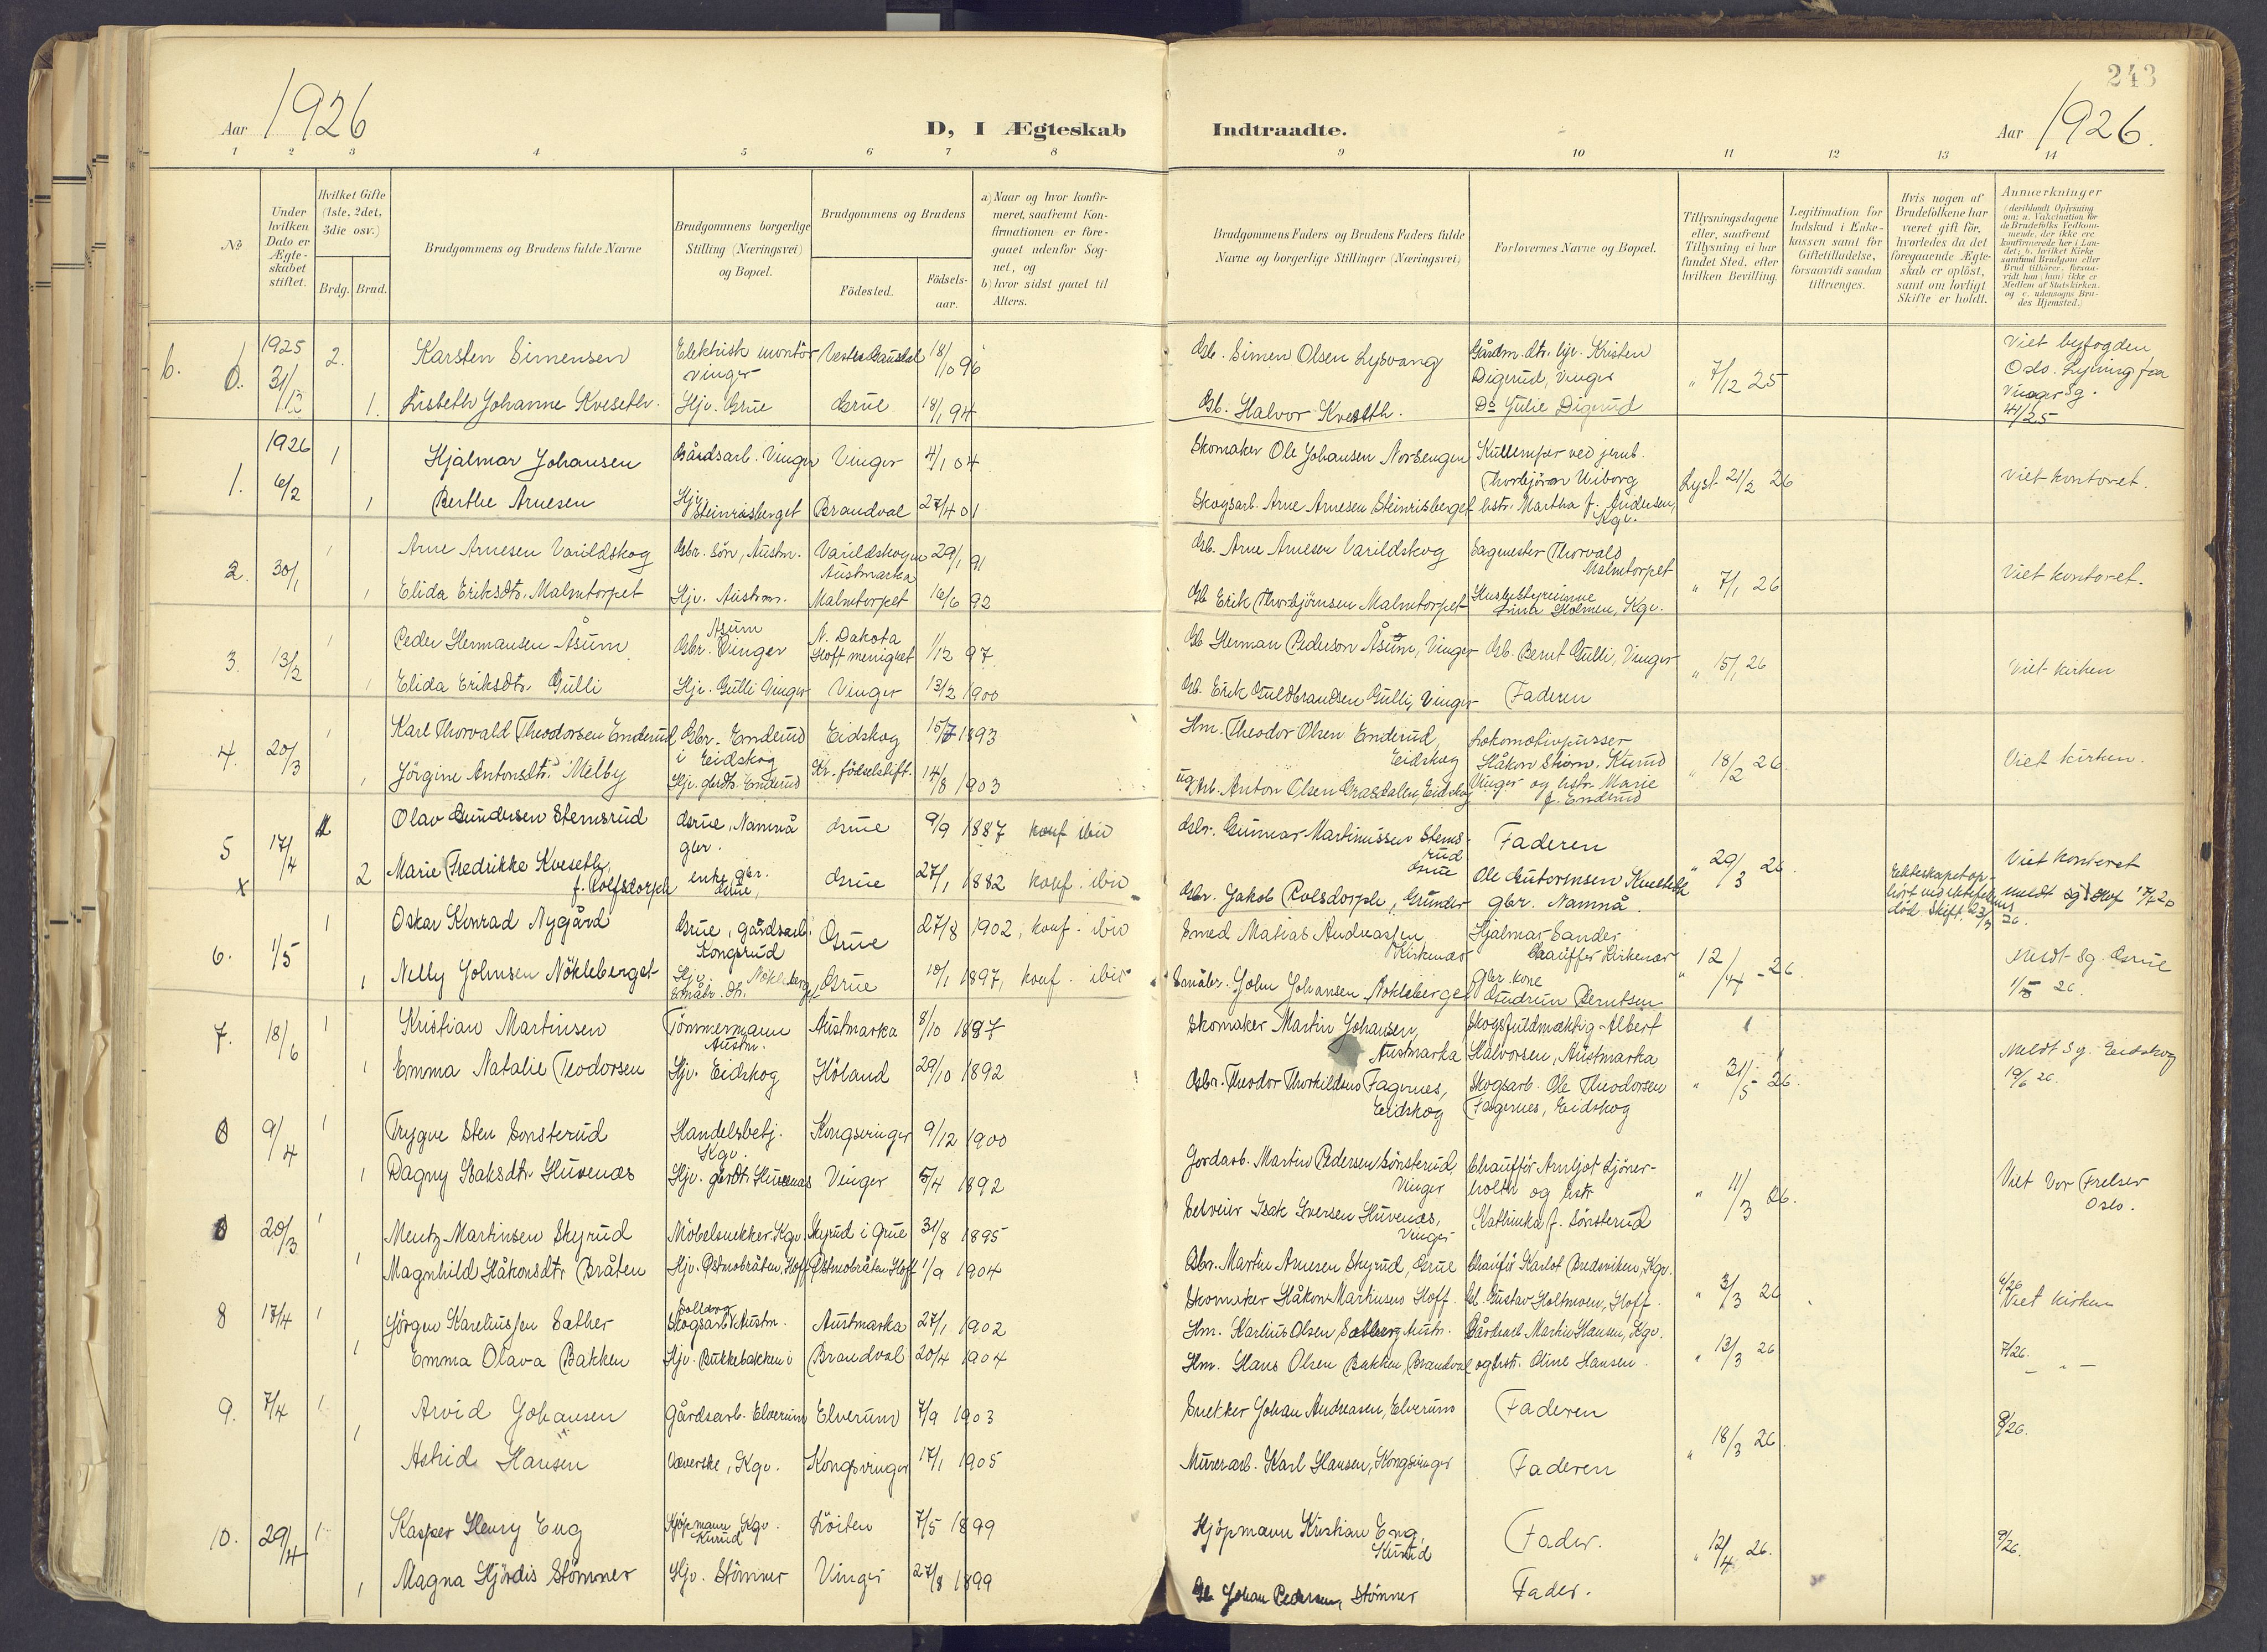 243
Aar 1926
D, I Ægteskab Indtraadte.
Aar 1926.
1 2 3 4 5 6 7 8 9 10 11 12 13 14
No
Under hvilken Dato er Ægteskabet stiftet.
Hvilket Gifte (1ste, 2det, 3die osv.)
Brdg. Brud.
Brudgommens og Brudens fulde Navne
Brudgommens borgerlige Stilling (Næringsvei) og Bopæl.
Brudgommens og Brudens
Födested.
Födselsaar.
a) Naar og hvor konfirmeret, saafremt Konfirmationen er foregaaet udenfor Sognet, og
b) hvor sidst gaaet til Alters.
Brudgommens Faders og Brudens Faders fulde Navne og borgerlige Stillinger (Næringsvei)
Forlovernes Navne og Bopæl.
Tillysningsdagene eller, saafremt Tillysning ei har fundet Sted, efter hvilken Bevilling.
Legitimation for Indskud i Enkekassen samt for Giftetilladelse, forsaavidt saadan tiltrænges.
Hvis nogen af Brudefolkene har været gift för, hvorledes da det foregaaende Ægteskab er oplöst, samt om lovligt Skifte er holdt.
Anmerkninger
(deriblandt Oplysning om: a. Vakcination for de Brudefolks Vedkommende, der ikke ere konfirmerede her i Landet; b. hvilket Kirkesamfund Brudgom eller Brud tilhører, forsaavidt han (hun) ikke er Medlem af Statskirken. og c. udensogns Brudes Hjemsted.)
6. 1925 31/12 2. Karsten Simensen Elektrisk montör Vinger 18/10 96 Gb. Simen Olsen Lysvang Gårdm. dtr. hjv. Kristen Digerud, Vinger " 7/12 25 Viet byfogden Oslo. Lysning fra Vinger Sg. 44/25
1. Lisbeth Johanne Kveseth. Hjv. Grue Grue 18/1 94 Gb. Halvor Kveseth. Do Julie Digerud
1. 1926 6/2 1 Hjalmar Johansen Gårdsarb. Vinger Vinger 4/1 04 Skomaker Ole Johansen Norsengen Kullemper ved jernb. Thorbjörn Viborg Lyst 21/2 26 Viet kontoret.
1 Berthe Arnesen Hjv. Steinrisberget Brandval 27/4 01 Skogsarb. Arne Arnesen Steinrisberget hstr. Martha f. Andersen, Kgv.
2. 30/1 1 Arne Arnesen Varildskog Gbr. sön, Austm. Varildskogen Austmarka 29/1 91 Gb. Arne Arnesen Varildskog Sagmester Thorvald Malmtorpet " 7/1 26 Viet kontoret.
1 Elida Eriksdtr. Malmtorpet Hjv. Austm. Malmtorpet 16/6 92 Gb Erik Thorbjörnsen Malmtorpet Husbestyrerinne Holmen, Kgv.
3. 13/2 1 Peder Hermansen Åsum Åsum Gbr. Vinger N. Dakota Hoff menighet 1/12 97 Gb Herman Pederson Åsum, Vinger Gb. Bernt Gulli, Vinger " 15/1 26 Viet kirken
1 Elida Eriksdtr. Gulli Hjv. Gulli Vinger Vinger 13/2 1900 Gb. Erik Guldbrandsen Gulli, Vinger Faderen
4. 20/3 1 Karl Thorvald Theodorsen Enderud Gbr. Enderud i Eidskog Eidskog 15/7 1893 Hm. Theodor Olsen Enderud, Eidskog Lokomotivpusser Håkon Strøm, Kurud " 18/2 26 Viet kirken.
1 Jörgine Antonsdtr. Melby Hjv. gårdtr. Enderud Kr. födselstift. 14/8 1903 Arb. Anton Olsen Grasdalen, Eidskog Vinger og hstr. Marie f. Enderud
5 17/4 Olav Gundersen Stemsrud Grue, Namnå gbr. Grue 9/9 1887 konf ibid Gbr. Gunnar Martinussen Stemsrud Grue Faderen " 29/3 26 Viet kontoret
x 2 Marie Fredrikke Kveseth, f. Rolfsdorph enke, gbr. Grue, Grue 27/1 1882 konf. ibid Gbr. Jakob Rolfsdorph, Grinder Ole Gutormsen Kveseth gbr. Namnå. Ekteskapet ophört ved ektefellens död Skift 23/3 26.
6. 1/5 1 Oskar Konrad Nygård Grue, gårdsarb. Kongsrud Grue 27/8 1902, konf. ibid Smed Matias Andreassen Kirkenær Hjalmar Sander Chauffør Kirkenær " 12/4 - 26 Meldt Sg. Grue 1/5 26.
1 Nelly Johnsen Nökleberget Hjv. Nökleberget Småbr. dtr. Grue 10/1 1897, konf. ibid Småbr. John Johansen Nökleberget Gbr. kone Gudrun Berntsen
7. 18/6 1 Kristian Martinsen Tömmermann Austm. Austmarka 8/10 1897 Skomaker Martin Johansen, Austmarka Skogsfuldmæktig Albert Halvorsen, Austmarka " 31/5 26. Meldt Sg. Eidskog 19/6 26.
1 Emma Natalie Teodorsen Hjv. Eidskog Höland 29/10 1892 Gbr. Theodor Thorkildsens Fagernes, Eidskog Skogsarb. Ole Theodorsen Fagernes, Eidskog
0 9/4 1 Trygve Sten Sonsterud Handelsbetj. Kgv. Kongsvinger 9/12 1900 Jordarb. Martin Pedersen Sönsterud, Vinger Chauffør Arnljot Sjönerholth og hstr. " 11/3 26. Viet Vor Frelser Oslo.
1 Dagny Isaksdtr. Huvenæs Hjv. gårdtr. Huvenæs Vinger 5/4 1892 Selveier Isak Iversen Huvenæs, Vinger Kathinka f. Sönsterud
0 20/3 1 Mentz Martinsen Skyrud Möbelsnekker Kgv. Skyrud i Grue 31/8 1895 Gbr. Martin Arnesen Skyrud, Grue Chaufför Karlot Bredsviken, Kgv. " 3/3 26 6/26 Viet kirken
1 Magnhild Håkonsdtr Bråten Hjv. Østmobråten, Hoff Østmobråten Hoff 1/9 1904 Skomaker Håkon Martinsens Hoff. Gb. Gustav Holtmoen, Hoff.
8 17/4 1 Jörgen Kareliussen Sæther Skogsarb. Austm. Austmarka 27/1 1902 Hm. Karlius Olsen Sætberg Austm. Gårdarb. Martin Hansen, Kgv. " 13/3 26 7/26.
1 Emma Olava Bakken Hjv. Bukkebakken i Brandval 20/4 1904 Hm. Hans Olsen Bakken, Brandval og hstr. Oline Hansen.
9. 7/4 1 Arvid Johansen Gårdsarb. Elverum Elverum 7/9 1903 Snekker Johan Andreasen, Elverum Faderen " 18/3 26 8/26.
1 Astrid Hansen Væverske, Kgv. Kongsvinger 17/1 1905 Murerarb. Karl Hansen, Kongsvinger Faderen
10. 29/4 1 Kasper Henry Eng Kjöpmann Kgv. Kurud Löiten 7/5 1899 Kjöpmann Kristian Eng, Kurud Fader. " 12/4 26. 9/26.
1 Magna Hjördis Stömner Hjv. Stömner Vinger 27/8 1899 Gb Johan Pedersen, Stömner Fader.